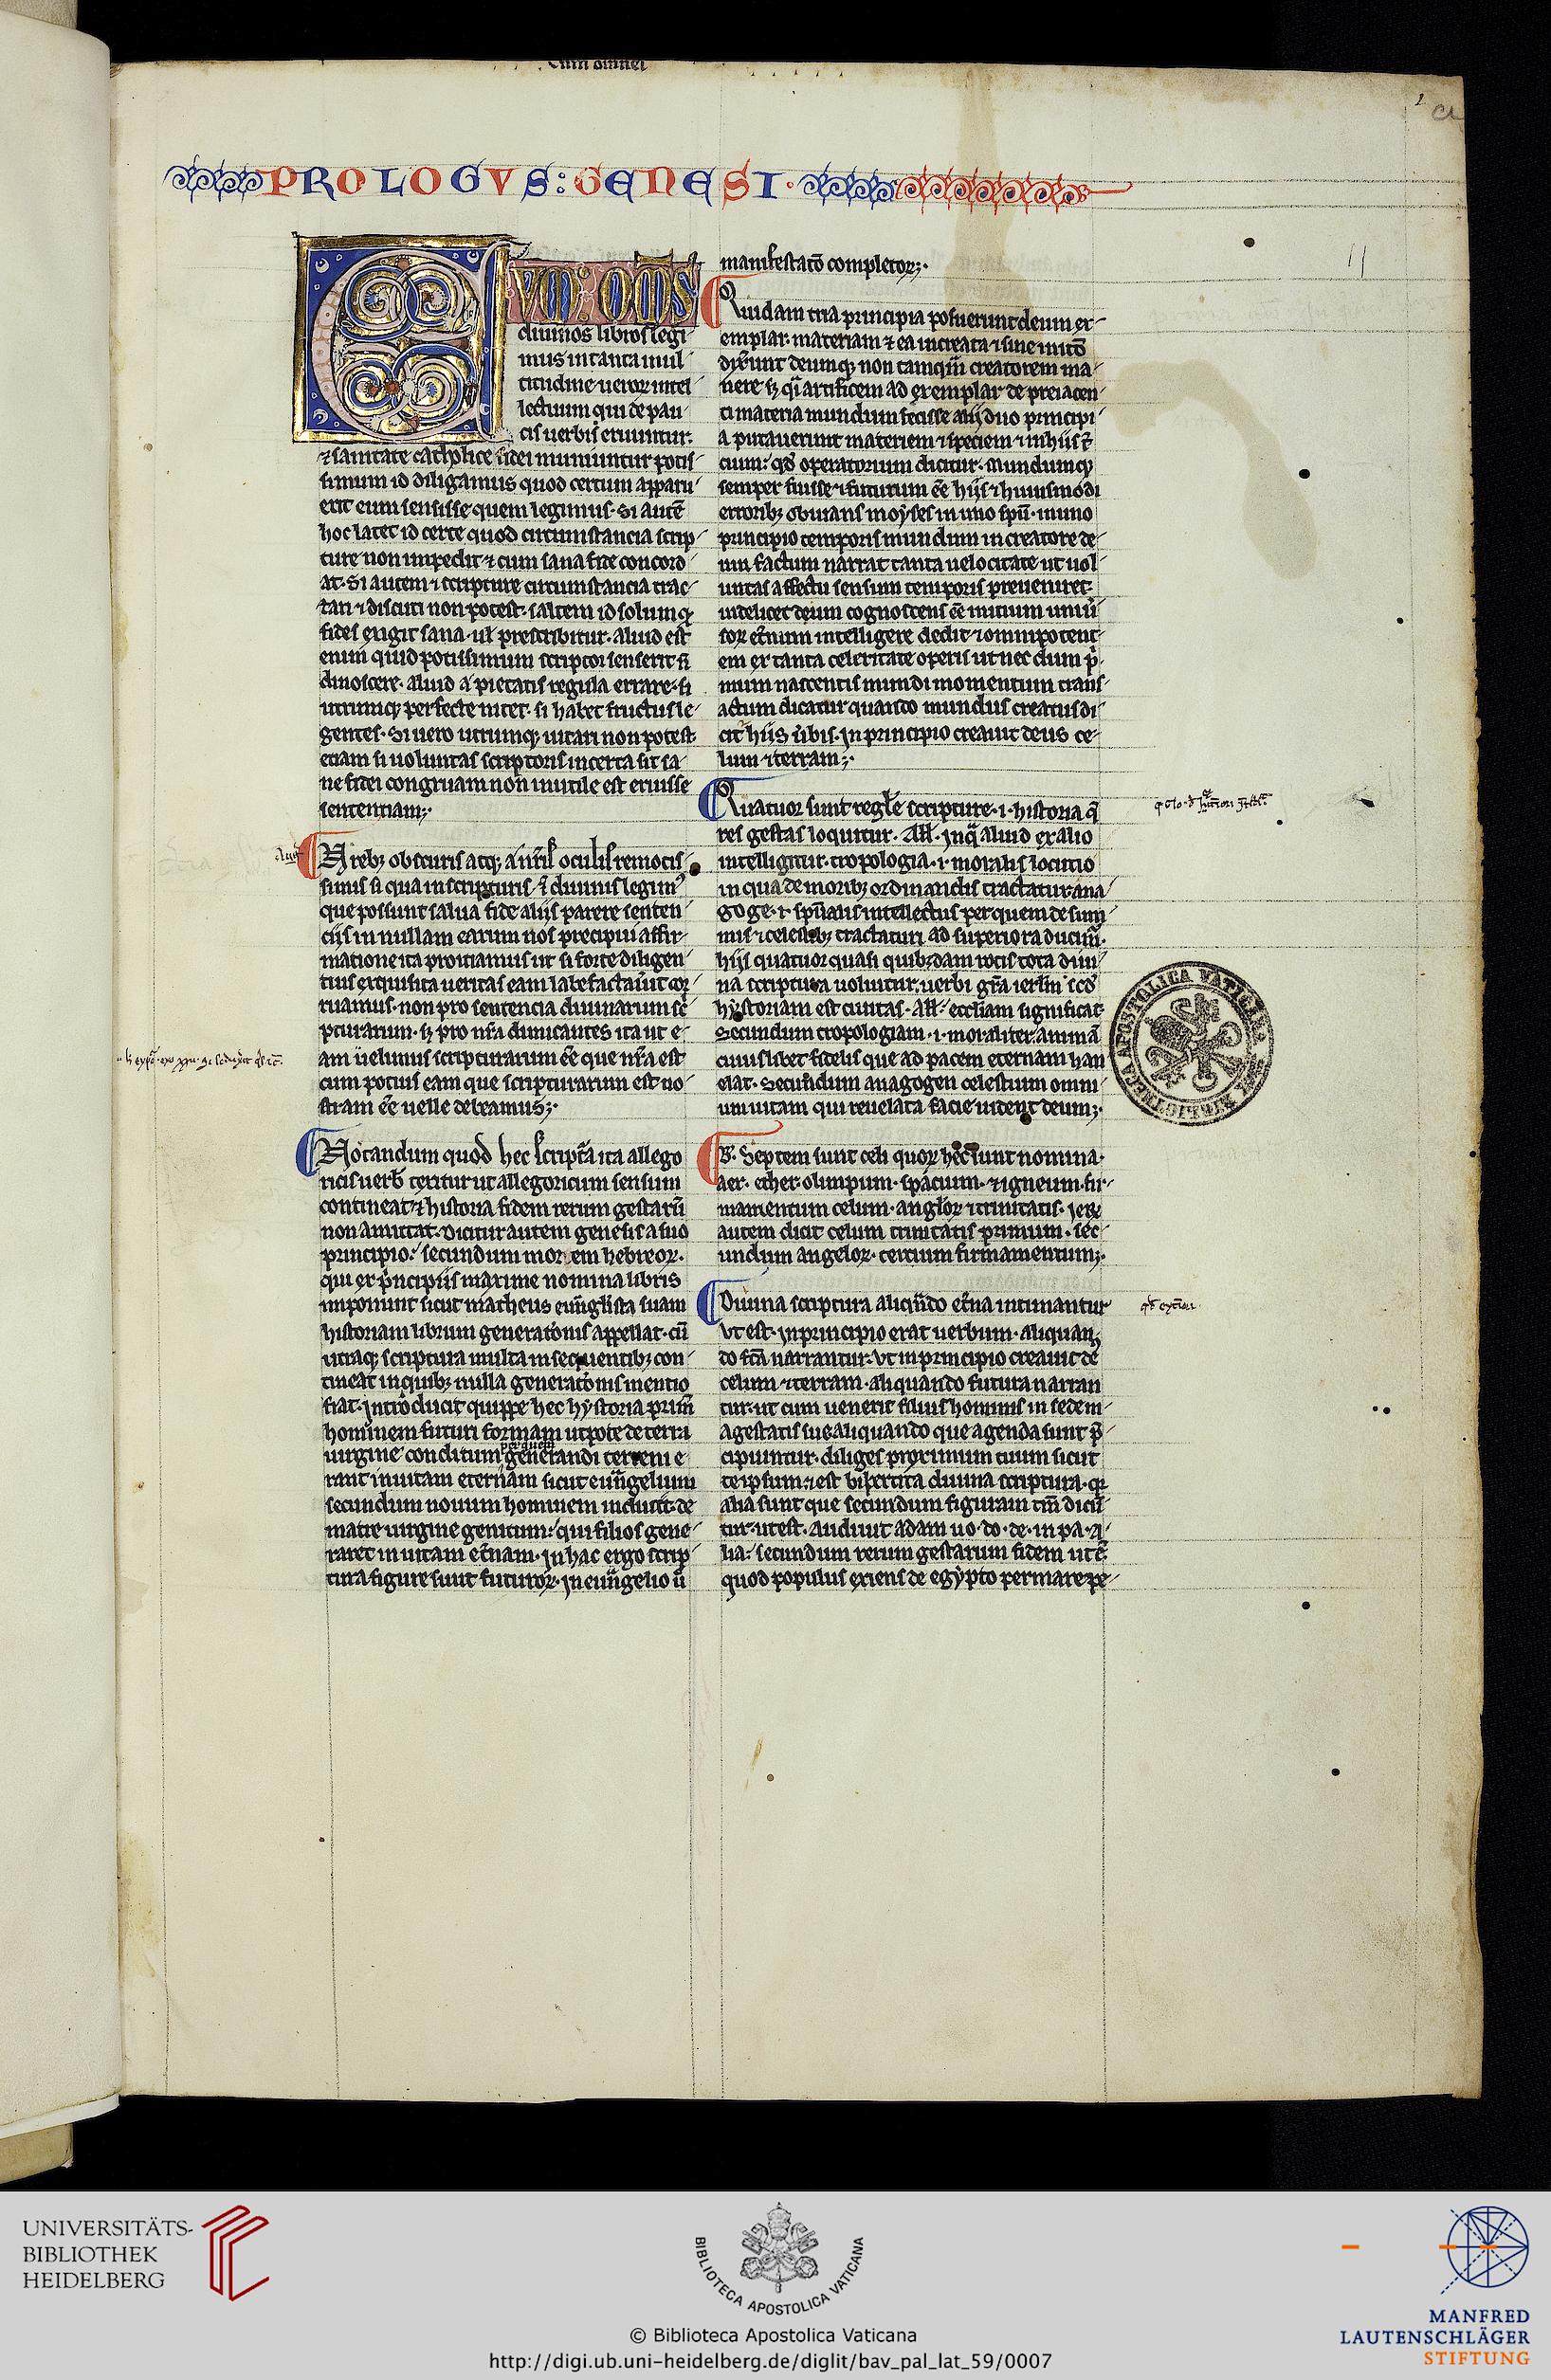 PROLOGVS: GENESI.
CVM: OMS
diuinos libros legi
mus in tanta mul
titudine ueroꝝ intel
lectuum qui de pau
cis uerbis eruuntur.
⁊ sanitate catholice fidei muniuntur potis
simum id diligamus quod certum apparu
erit eum sensisse quem legimus. Si autē
hoc latet id certe quod circumstancia scrip
ture non impedit ⁊ cum sana fide concord
at. Si autem ⁊ scripture circumstancia trac
tari ⁊ discuti non potest. saltem id solum qꝫ
fides exigit sana. ul̄ prescribitur. aliud est
enim quid potissimum scriptor senserit n̄
dinoscere. aliud a pietatis regula errare. si
utrumqꝫ perfecte uitet. si habet fructus le
gentes. Si uero utrumqꝫ uitari non potest
etiam si uoluntas scriptoris incerta sit sa
ne fidei congruam non inutile est eruisse
sententiam;.
Aug
A rebꝫ obscuris atqꝫ a nr̄is oculis remotis
simis si qua in scripturis ⁊ diuinis legimꝰ
que possunt salua fide aliis parere senten
ciis in nullam earum nos precipiti affir
matione ita proiciamus ut si forte diligen
tius exquisita ueritas eam labefactauīt coꝝ
ruamus. non pro sentencia diuinarum sc̄
pturarum. sꝫ pro nr̄a dimicantes ita ut e
am uelimus scripturarum eē que nr̄a est
cum potius eam que scripturarum est no
stram eē uelle debeamus;.
Notandum quod hec scriptr̄a ita allego
ricis uerb̄ texitur ut allegoricum sensum
contineat ⁊ historia fidem rerum gestarū
non amittat. Dicitur autem genesis a suo
principio. secundum morem hebreoꝝ.
qui ex principiis maxime nomina libris
imponunt sicut matheus euāglista suam
historiam librum generatōnis appellat. cū
utraqꝫ scriptura multa in sequentibꝫ con
tineat in quibꝫ nulla generatōnis mentio
fiat. Introducit quippe hec hystoria primū
hominem futuri formam utpote de terra
per quem
uirgine conditum generandi terreni e
rant in uitam eternam sicut euāgelium
secundum nouum hominem inducit de
matre uirgine genitum. qui filios gene
raret in uitam et̄nam. In hac ergo scrip
tura figure sunt futuroꝝ. In euāgelio ū
manifestatō completoꝝ;.
Quidam tria principia posuerunt deum ex
emplar. materiam ⁊ ea increata ⁊ sine initō
dixerunt deumqꝫ non tamquā creatorem ma
nere sꝫ q̄i artificem ad exemplar de preiacen
ti materia mundum fecisse alij duo principi
a putauerunt materiem ⁊ speciem ⁊ in hiis t̄
cium: qd̄ operatorium dicitur. Mundumqꝫ
semper fuisse ⁊ futurum eē hijs ⁊ huiusmodi
erroribꝫ obuians moyses in uno spū. in uno
principio temporis mundum in creatore de
um factum narrat tanta uelocitate ut uol
untas affectu sensum temporis preueniret.
uidelicet deum cognoscens eē initium uniū
soꝝ et̄num intelligere dedit ⁊ omnipotent
em ex tanta celeritate operis ut nec dum p̄
mum nascentis mundi momentum trans
actum dicatur quando mundus creatus di
cit̄ hiis ūbis. In principio creauit deus ce
lum ⁊ terram;.
Quatuor sunt regl̄e scripture. i. historia q̄
res gestas loquitur. All̄. In q̄ aliud ex alio
intelligitur. tropologia. i. moralis locutio
in qua de moribꝫ ordinandis tractatur. ana
goge. i. spūalis intellectus per quem de sum
mis ⁊ celestibꝫ tractaturi ad superiora ducimꝰ.
hijs quatuor quasi quibꝫdam rotis tota diui
na scriptura uoluitur. uerbi gr̄a ierl̄m scd̄
hystoriam est ciuitas. all̄. eccl̄iam significat.
Secundum tropologiam. i. moraliter animā
cuius libet fidelis que ad pacem eternam han
elat. Secundum anagogen celestium omni
um uitam qui reuelata facie uident deum;.
B. Septem sunt celi quoꝝ hec sunt nomina.
aer. ether. olimpum. spacium. ⁊ igneum. fir
mamentum celum. angl̄oꝝ ⁊ trinitatis. Iero
autem dicit celum trinitatis primum. sec
undum angeloꝝ. tercium firmamentum;.
Diuina scriptura aliqn̄do et̄na intimantur
Vt est. In principio erat uerbum. aliquan
do fc̄a narrantur. Vt in principio creauit de
celum ⁊ terram. aliquando futura narran
tur. ut cum uenerit filius hominis in sede m
agestatis sue. aliquando que agenda sunt p̄
cipiuntur. diliges proximum tuum sicut
te ipsum. ⁊ est bipertita diuina scriptura. qꝫ
alia sunt que secundum figuram tm̄ dicū
tur. ut est. Audiuit adam uo. do. de. in pa. A
lia. secundum rerum gestarum fidem ut ē.
quod populus exiens de egypto per mare pe
BIBLIOTECA APOSTOLICA VATICANA
UNIVERSITÄTS-
BIBLIOTHEK
HEIDELBERG
BIBLIOTECA APOSTOLICA VATICANA
© Biblioteca Apostolica Vaticana
http://digi.ub.uni-heidelberg.de/diglit/bav_pal_lat_59/0007
MANFRED
LAUTENSCHLÄGER
STIFTUNG